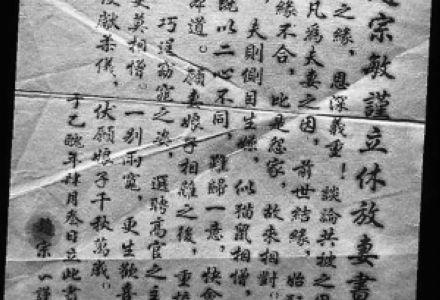 宗敏謹立休放妻書
之緣，恩深義重！談論共被之
凡為夫妻之因，前世結緣，始
緣不合，比是怨家，故來相對
夫則側目生嫌，似貓鼠相憎，
既以二心不同，難歸一意，快會
道。願妻娘子相離之後，重梳
巧逞窈窕之姿，選聘高官之主
更莫相憎。一別兩寬，更生歡喜
獻柒儀，伏願娘子千秋萬歲
于乙醜年肆月叁日立此書
趙宗